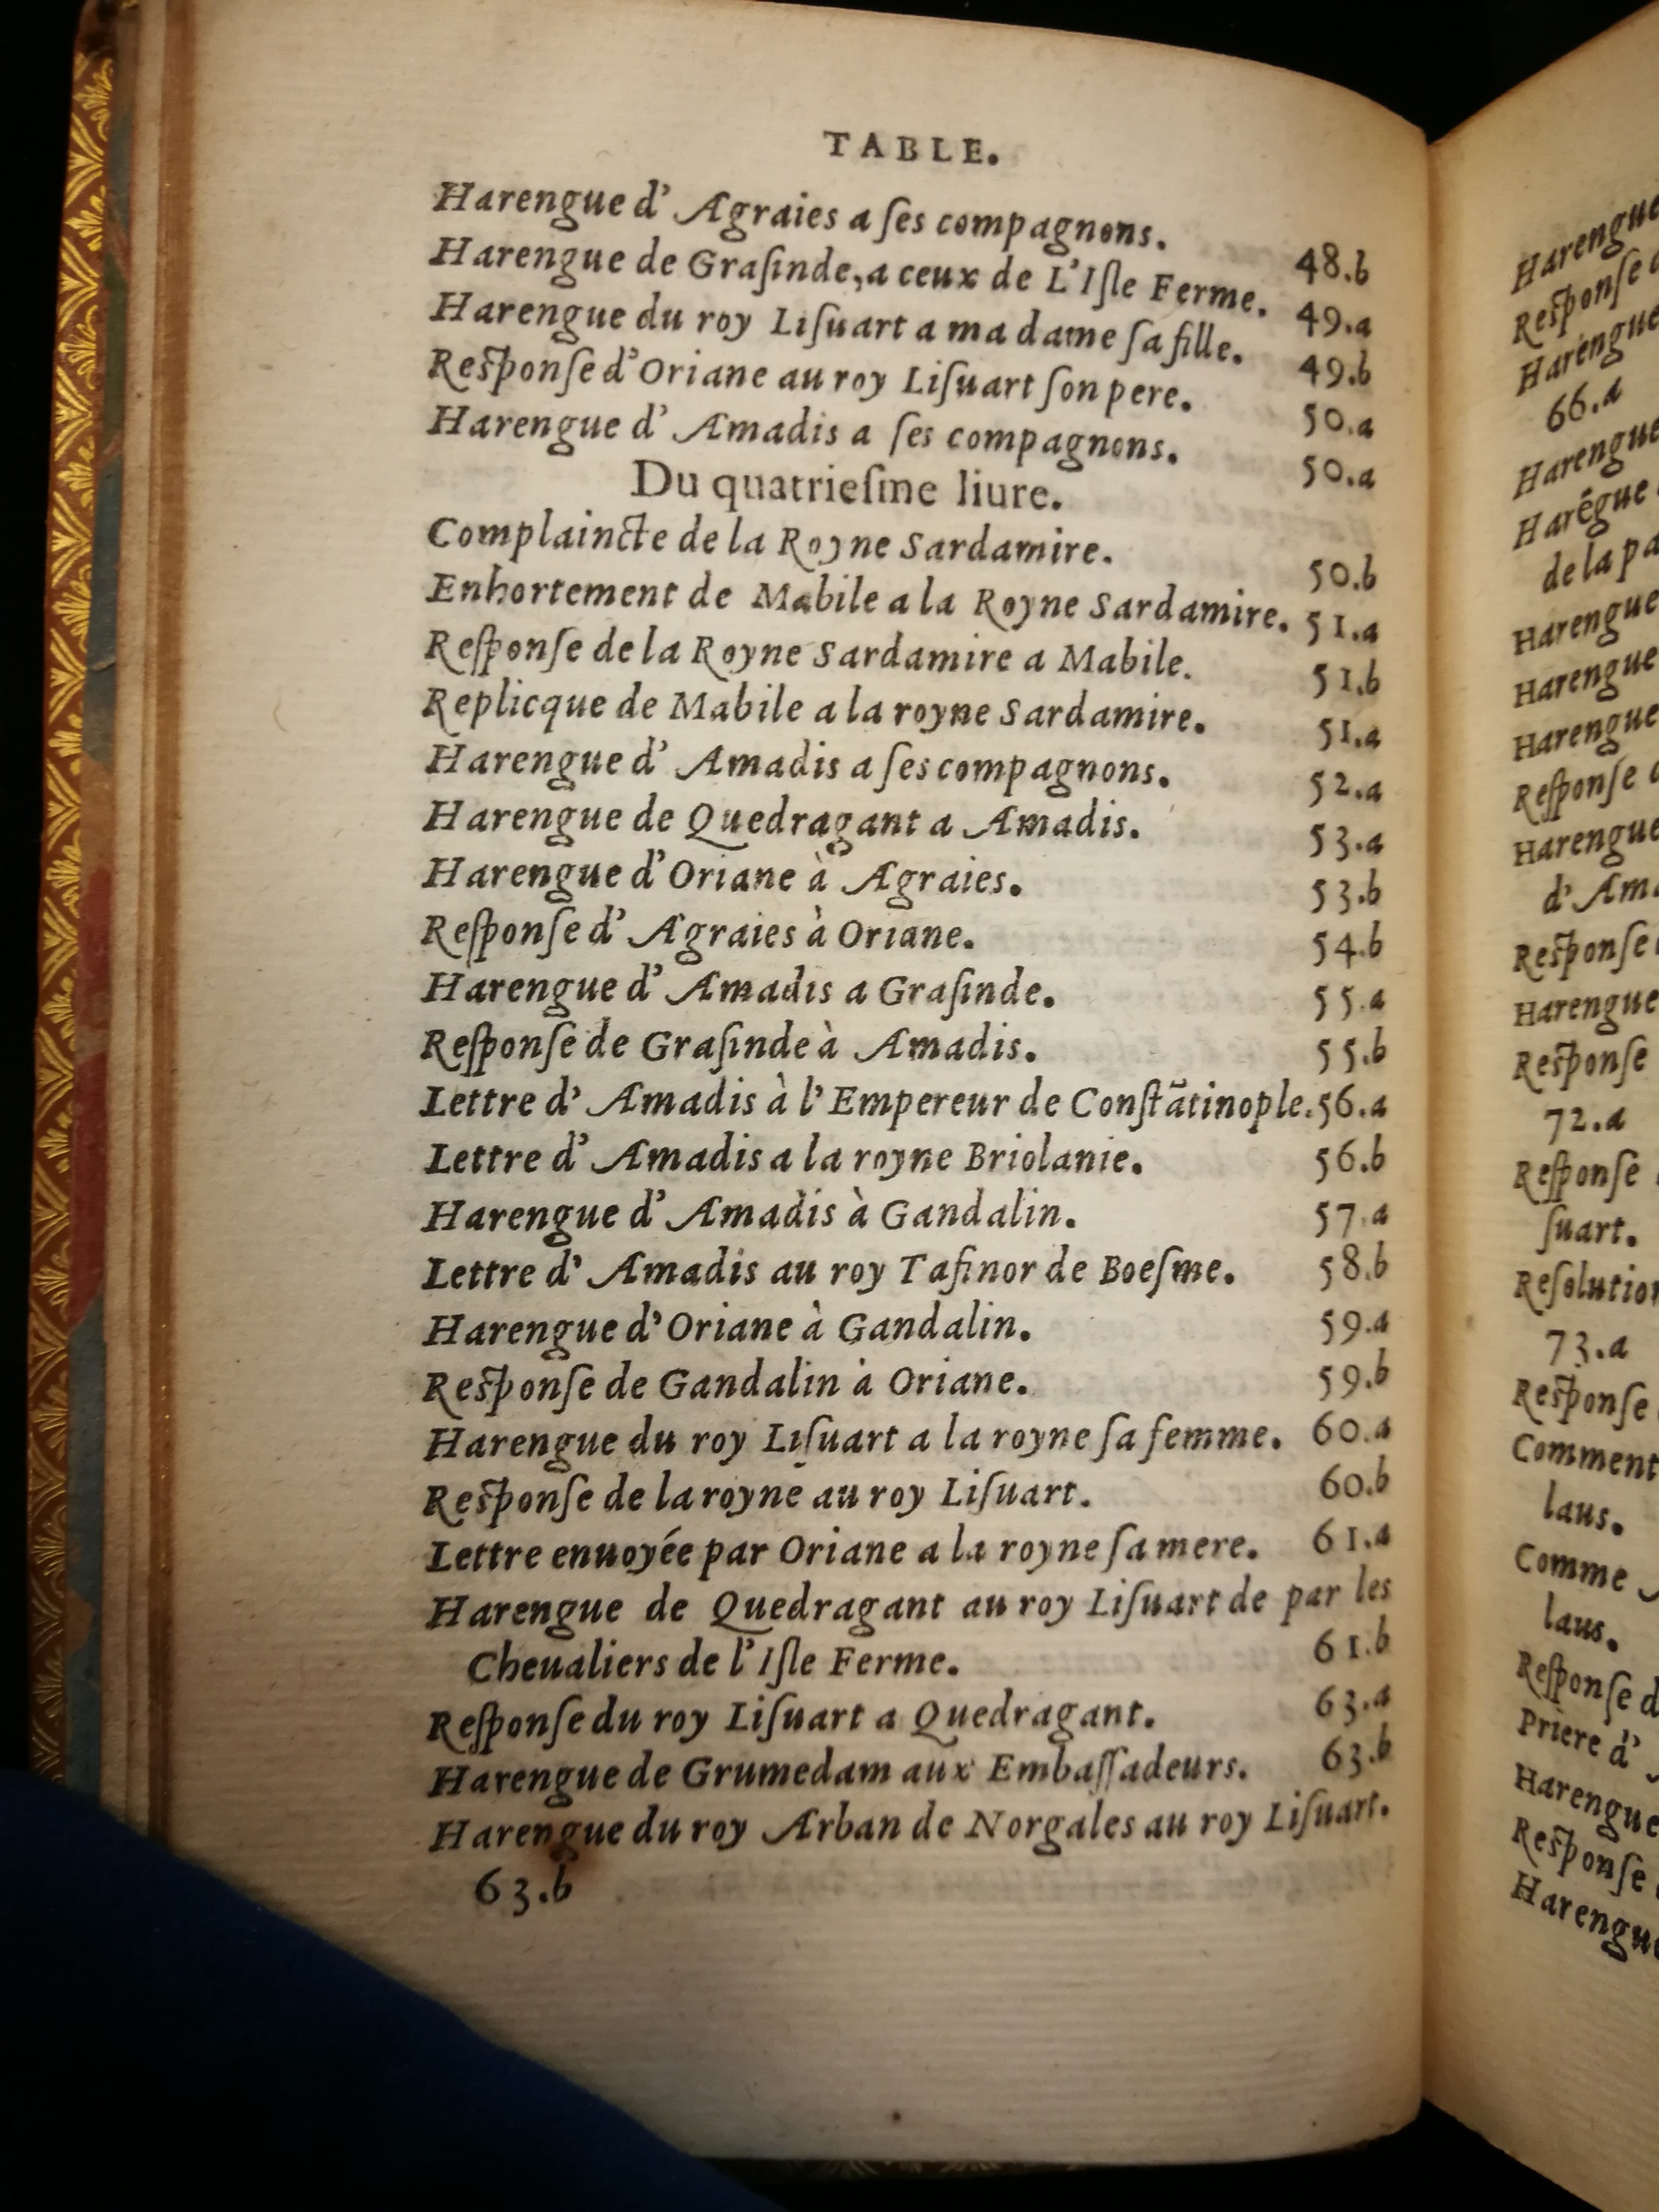 TABLE.
Harengue d' Agraies a ſes compagnons. 48.b
Harengue de Graſinde, a ceux de L'Iſle Ferme. 49.a
Harengue du roy Liſuart a ma dame ſa fille. 49.b
Reſponſe d'Oriane au roy Liſuart ſon pere. 50.a
Harengue d' Amadis a ſes compagnons. 50.a
Du quatrieſme liure.
Complaincte de la Royne Sardamire. 50.b
Enhortement de Mabile a la Royne Sardamire. 51.a
Reſponſe de la Royne Sardamire a Mabile. 51.b
Replicque de Mabile a la royne Sardamire. 51.a
Harengue d' Amadis a ſes compagnons. 52.a
Harengue de Quedragant a Amadis. 53.a
Harengue d'Oriane à Agraies. 53.b
Reſponſe d' Agraies à Oriane. 54.b
Harengue d' Amadis a Graſinde. 55.a
Reſponſe de Graſinde à Amadis. 55.b
Lettre d' Amadis à l'Empereur de Conſtãtinople. 56.a
Lettre d' Amadis a la royne Briolanie. 56.b
Harengue d' Amadis à Gandalin. 57.a
Lettre d' Amadis au roy Tafinor de Boeſme. 58.b
Harengue d'Oriane à Gandalin. 59.a
Reſponſe de Gandalin à Oriane. 59.b
Harengue du roy Liſuart a la royne ſa femme. 60.a
Reſponſe de la royne au roy Liſuart. 60.b
Lettre enuoyée par Oriane a la royne ſa mere. 61.a
Harengue de Quedragant au roy Liſuart de par les
Cheualiers de l'Iſle Ferme. 61.b
Reſponſe du roy Liſuart a Quedragant. 63.a
Harengue de Grumedam aux Embaſſadeurs. 63.b
Harengue du roy Arban de Norgales au roy Liſuart.
63.b
Harengue
Reſponſe
Harengue
66.a
Harengue
Harẽgue
de la pa
Harengue
Harengue
Harengue
Reſponſe
Harengue
d' Ama
Reſponſe
Harengue
Reſponſe
72.a
Reſponſe
ſuart.
Reſolution
73.a
Reſponſe
Comment
laus.
Comme
laus.
Reſponſe d
Priere d'
Harengue
Reſponſe
Harengue